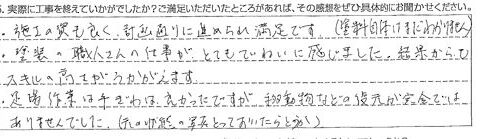 5. 実際に工事を終えていかがでしたか？ご満足いただいたところがあれば、その感想をぜひ具体的にお聞かせください。
・施工の質も良く、計画通りに進められ満足です。(塗料自体はまだわかりません)
・塗装の職人さんの仕事がとてもていねいに感じました。結果からも
スキルの高さがうかがえます。
・足場作業は手ぎわは良かったですが移動物などの復元が完全では
ありませんでした。(元の状態の写真とっておいたらと思う)